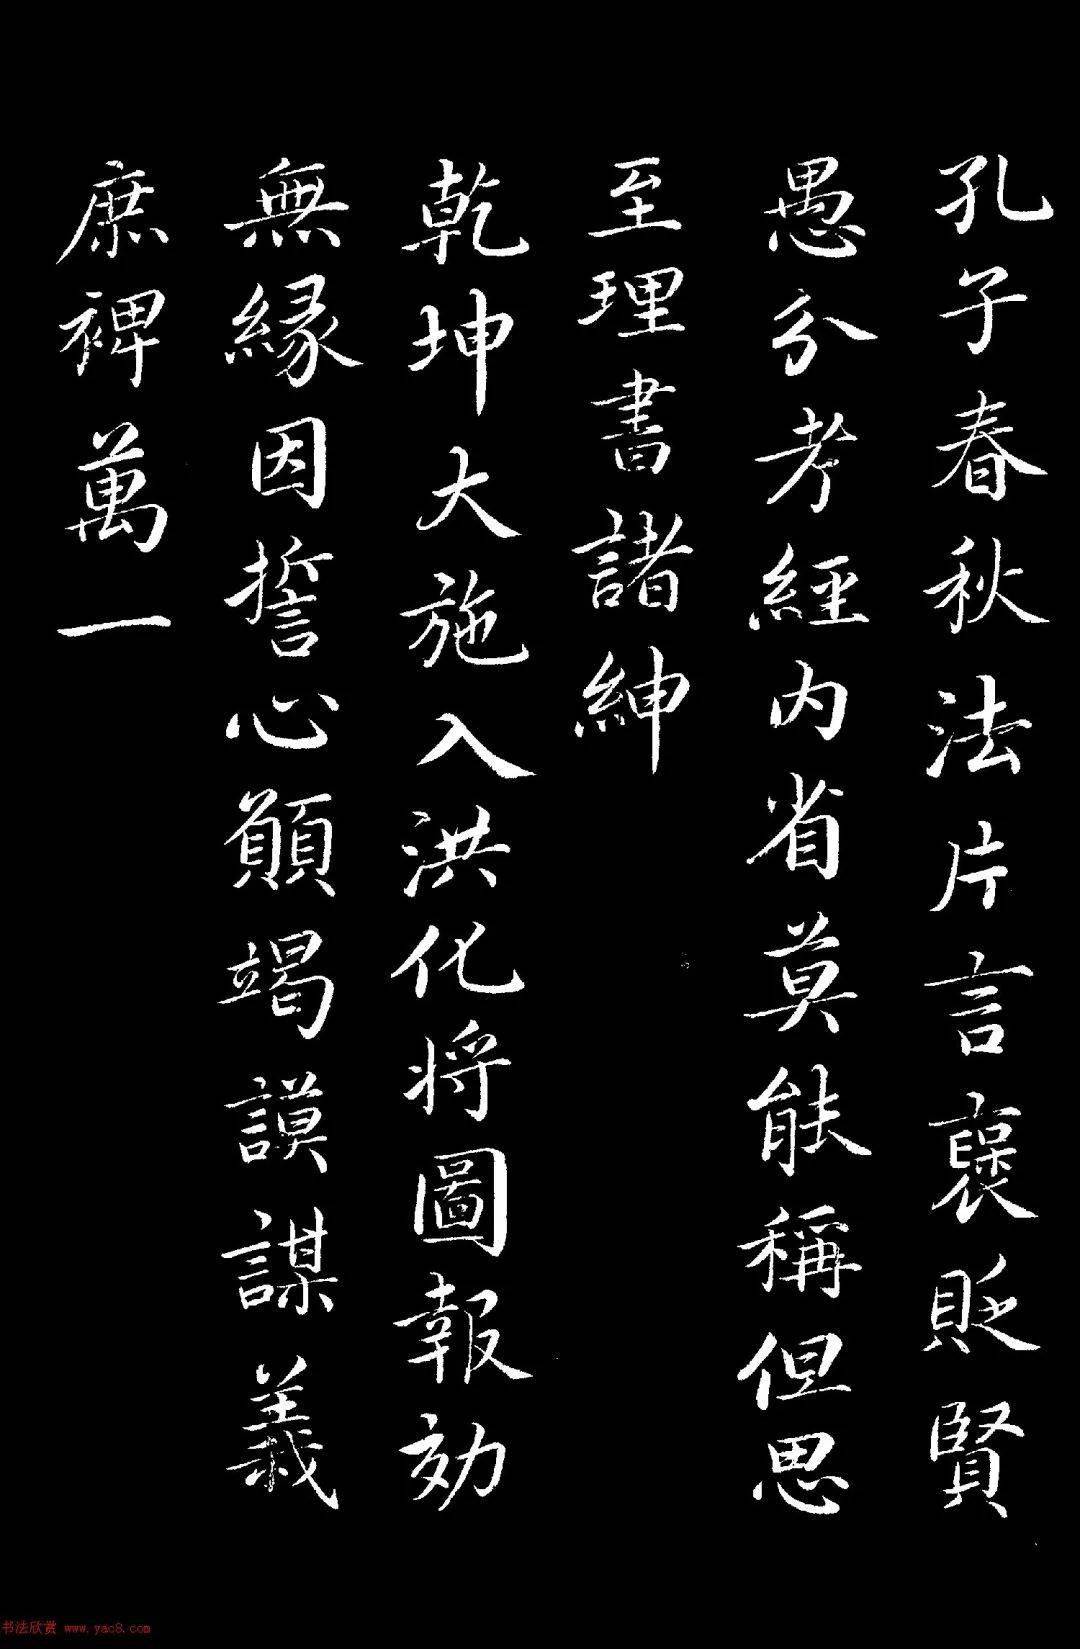 孔子春秋法片言褒貶賢
愚分考經内省莫能稱但思
至理書諸紳
乾坤大施入洪化将圖報効
無縁因誓心願竭謨謀義
庶裨萬一
书法欣赏 www.yac8.com